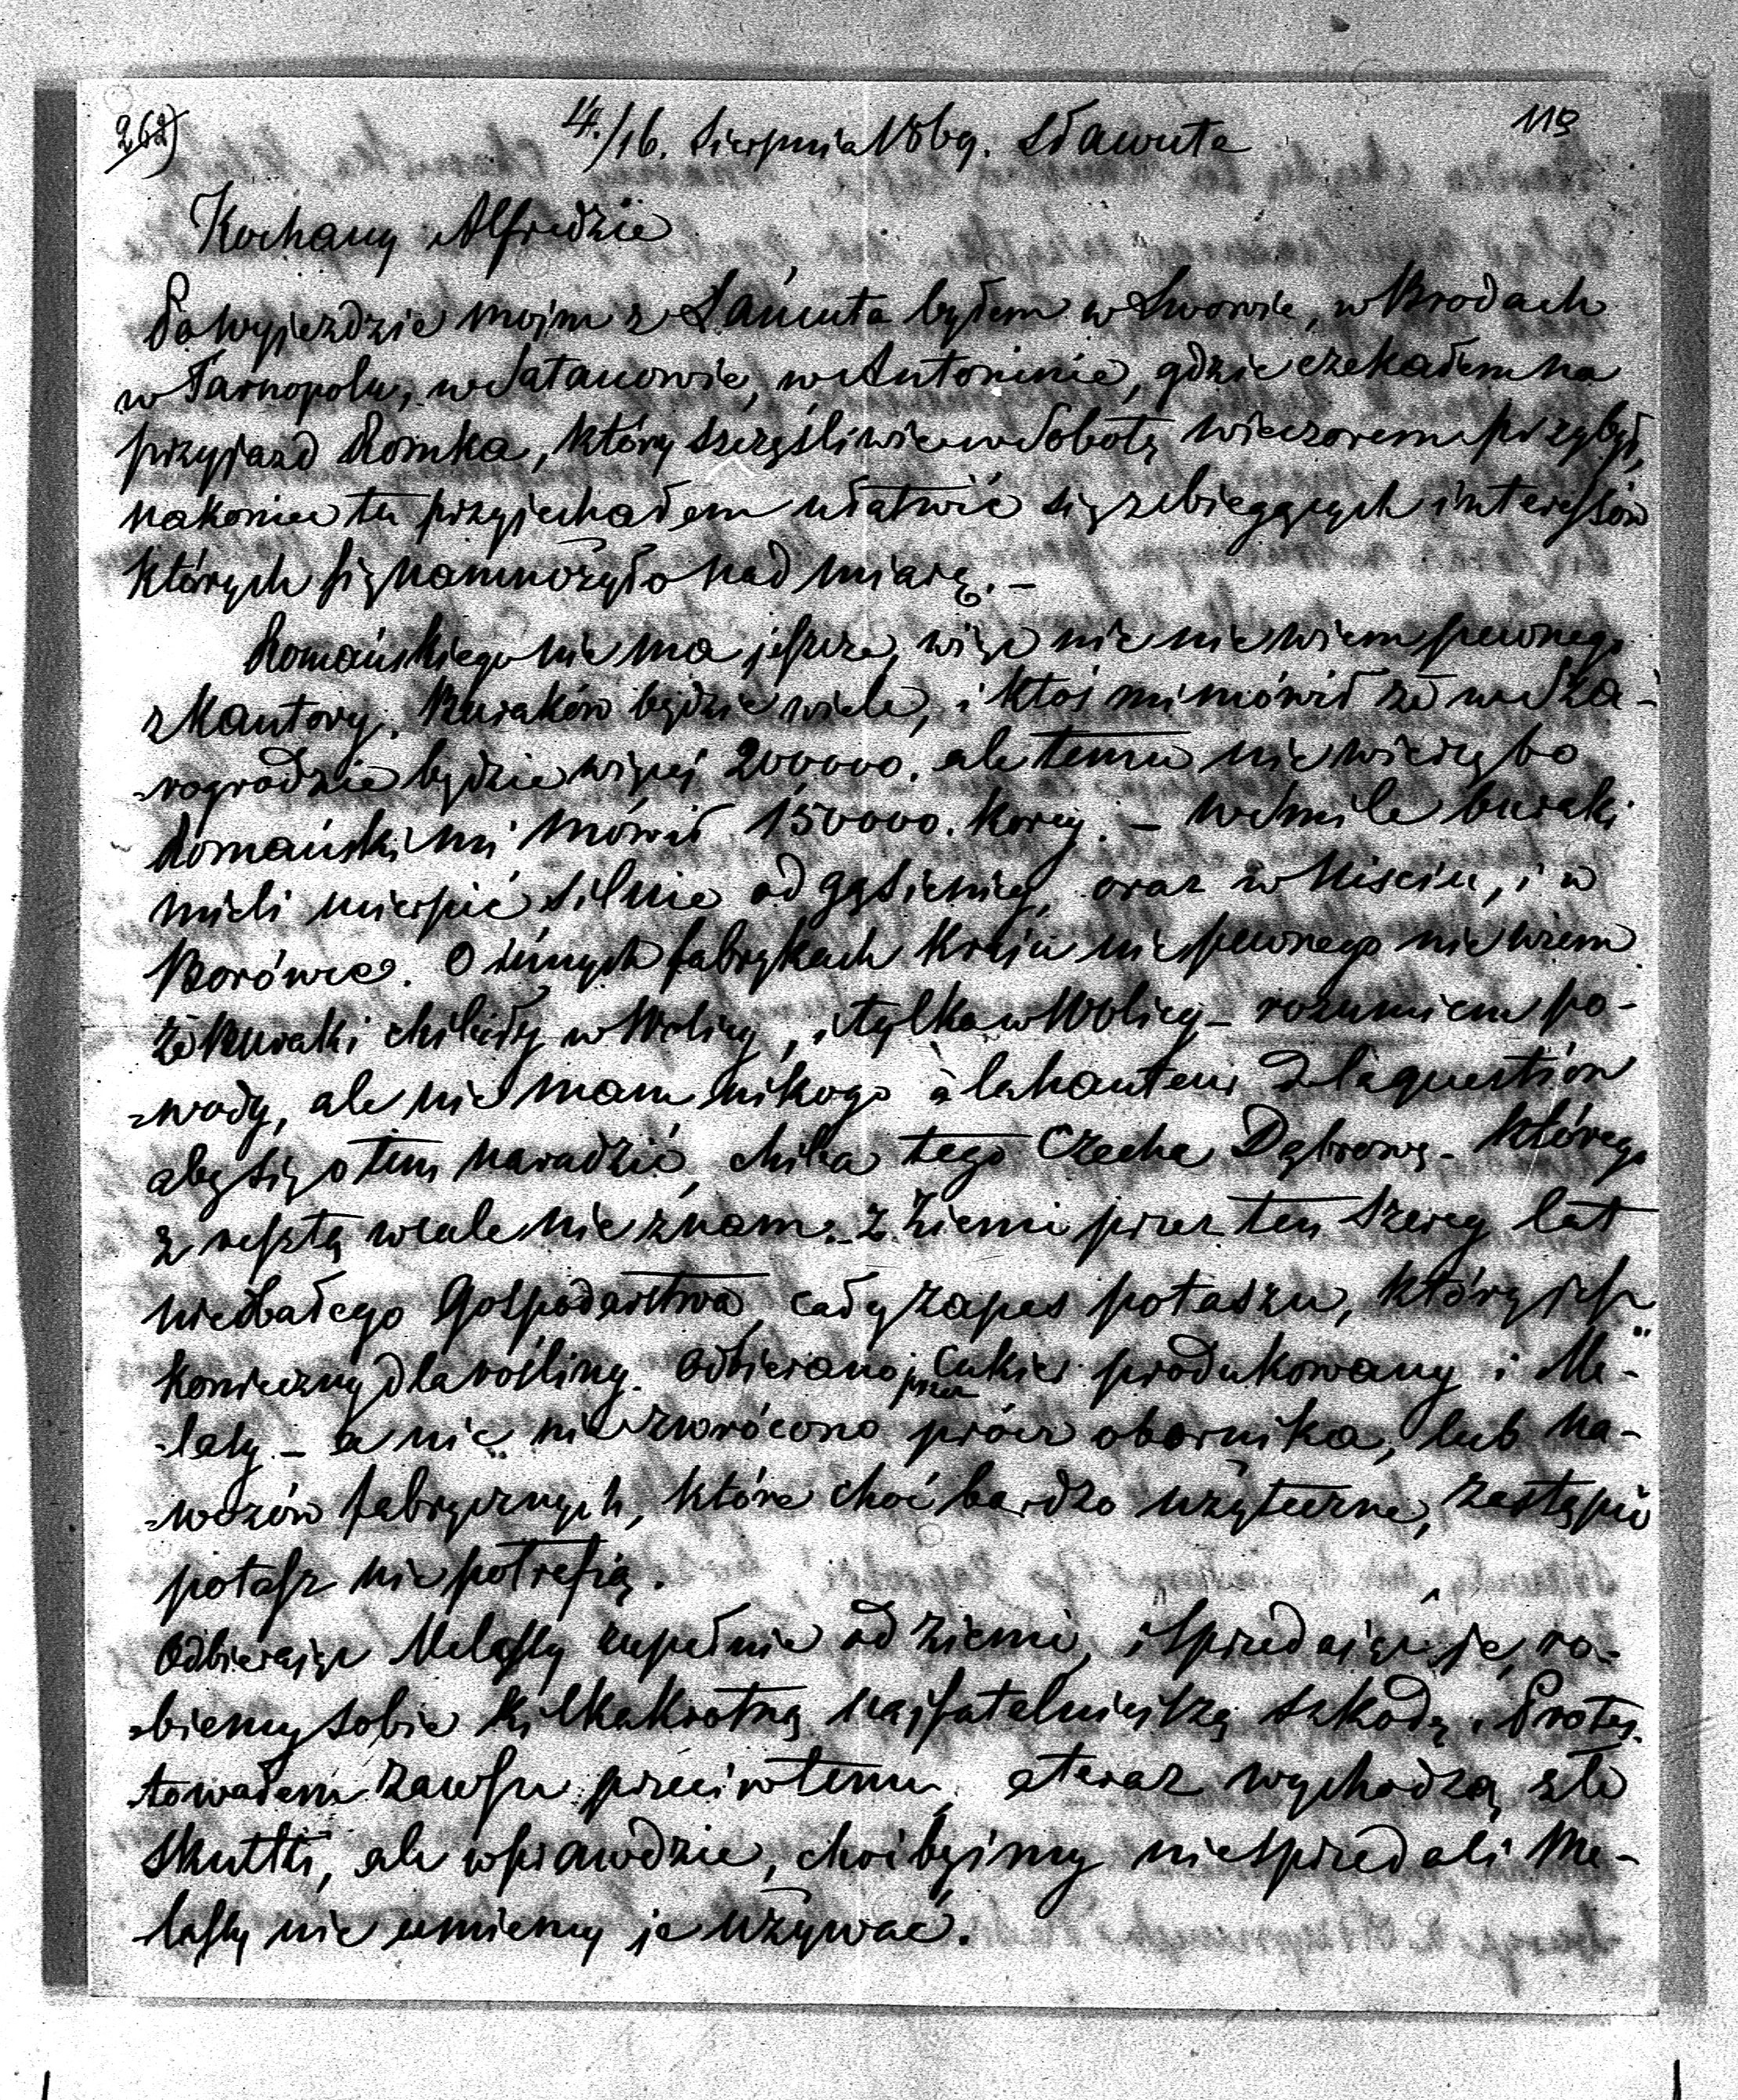 262)
4./16. Sierpnia 1869. Sławuta
119
Kochany Alfredzie
Po wyjeździe moim z Łańcuta byłem w Lwowie, w Brodach
w Tarnopolu, w Satanowie, w Antoninie, gdzie czekałem na
przyjazd Romka, który szczęśliwie w Sobotę wieczorem przybył,
nakoniec tu przyjechałem ułatwić się z bieżących interessów
których się namnożyło nad miarę. –
Romańskiego nie ma jeszcze, więc nic nie wiem pewnego
z Kantory. Buraków będzie wiele, i ktoś mi mówił że w Sza-
-rogrodzie będzie więcej 200000. ale temu nie wierzę bo
Romański mi mówił 150000. korcy. – buraki
mieli ucierpić silnie od gąsienicy, oraz w , i w
Borówce. O innych fabrykach Kraju nic pewnego nie wiem.
Że Buraki chibiły w Wolicy, i tylko w Wolicy – rozumiem po-
-wody, ale nie mam nikogo à la hauteur de la question
aby się o tem naradzić, chiba tego Czecha Dąbrowę – którego
z resztą wcale nie znam. – Z Ziemi przez ten szereg lat
niedbałego Gospodarstwa, cały zapas potaszu, który jest
konieczny dla rośliny. odbierano przez Cukier produkowany i Me-
-lasy – a nic nie zwrócono prócz obornika, lub na-
-wozów fabrycznych, które choć bardzo użyteczne, zastąpić
potasz nie potrafią.
Odbierając Melassy zupełnie od ziemi, i sprzedając je, ro-
-biemy sobie kilkakrotną najfatalniejszą szkodę. Protes-
-towałem zawsze przeciw temu, a teraz wychodzą złe
skutki, ale wprawdzie, choćbyśmy nie sprzedali Me-
-lassy nie umiemy je używać.